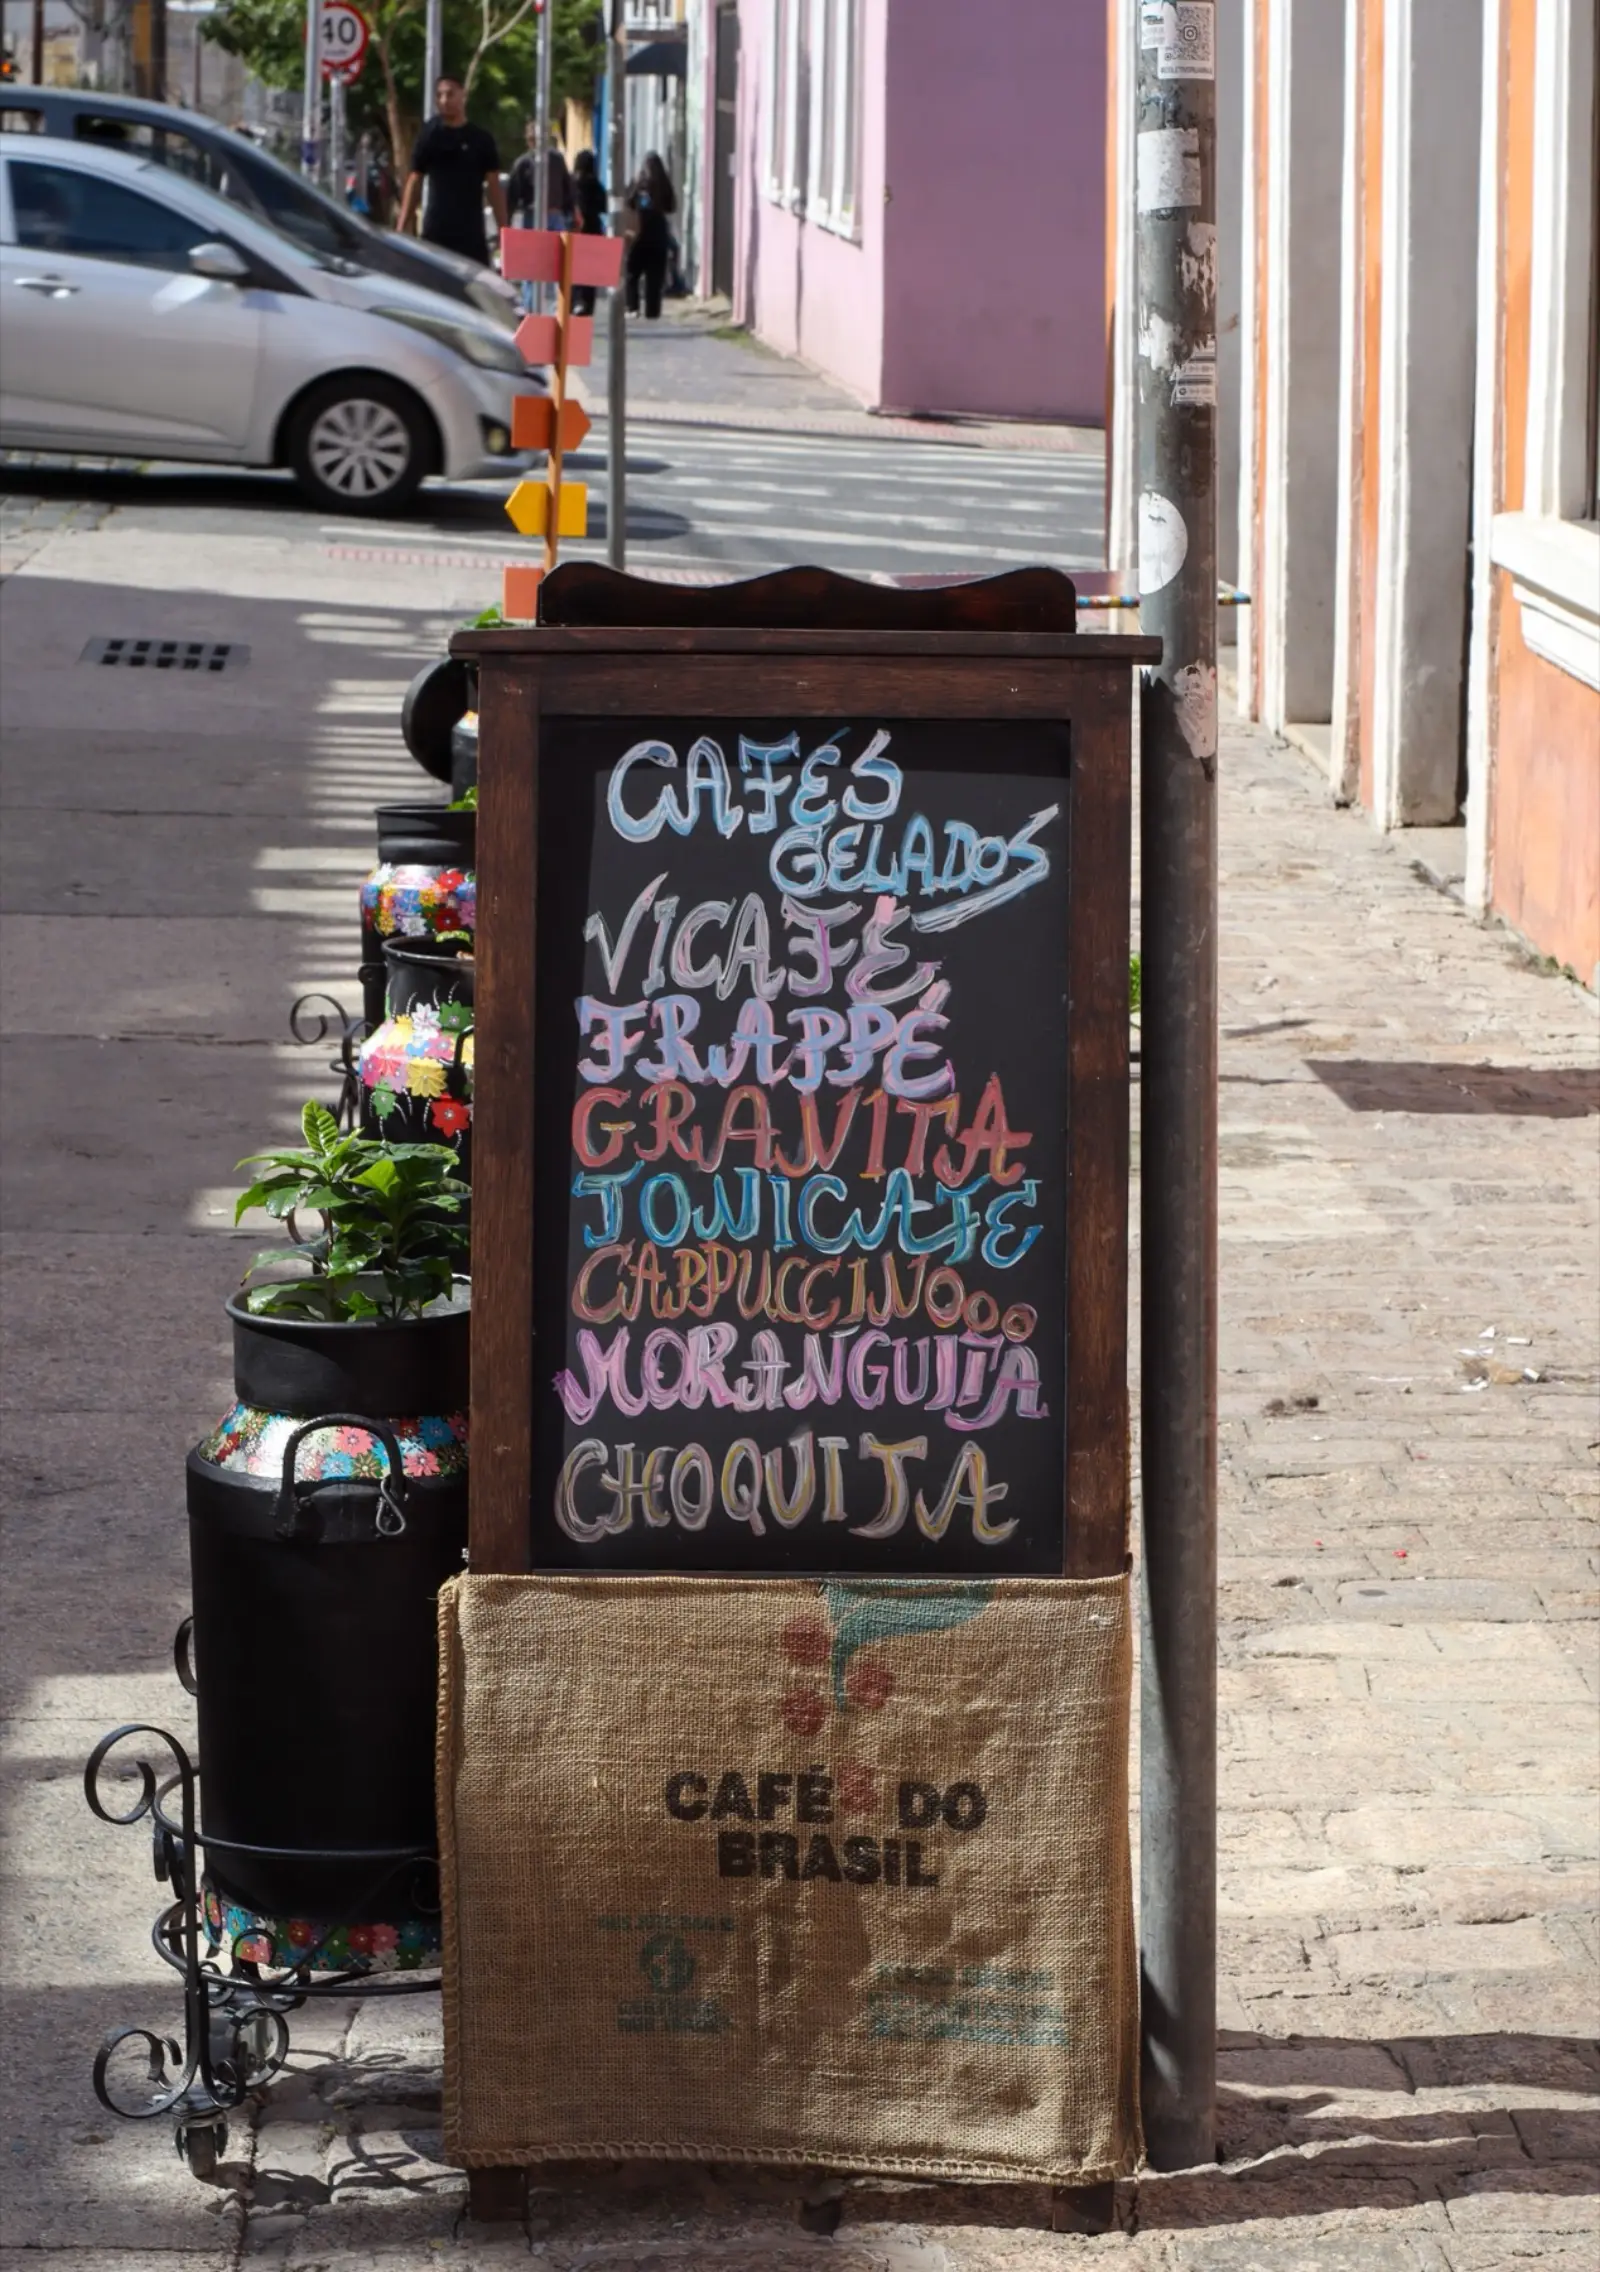 40
CAFÉS
GELADOS
VICAFÉ
FRAPPÉ
GRAVITA
TONICAFÉ
CAPPUCCINOOOO
MORANGUIJA
CHOQUIJA
CAFÉ DO
BRASIL